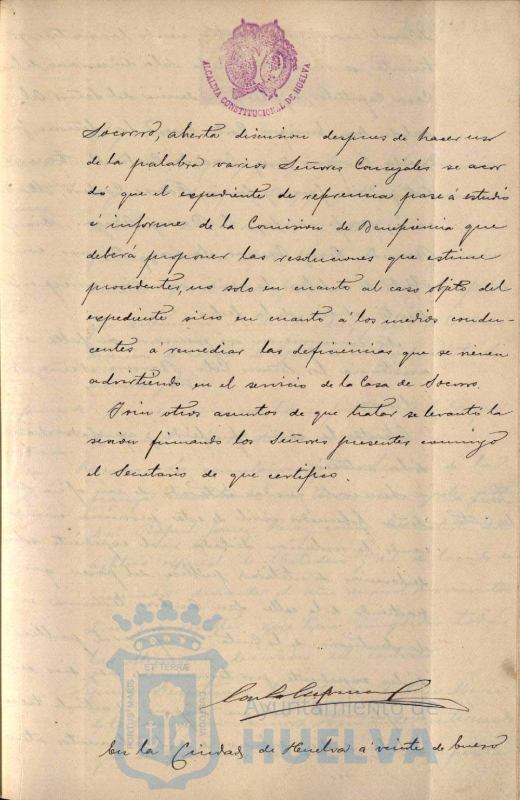 ALCALDIA CONSTITUCIONAL DE HUELVA
Socorro, abierta discusion despues de hacer uso
de la palabra varios Señores Concejales se acor
dó que el expediente de referencia pase á estudio
é informe de la Comision de Beneficencia que
deberá proponer las resoluciones que estime
procedentes, no solo en cuanto al caso objeto del
expediente sino en cuanto á los medios condu-
centes á remediar las deficiencias que se vienen
advirtiendo en el servicio de la Casa de Socorro.
Y sin otros asuntos de que tratar se levantó la
sesion firmando los Señores presentes conmigo
el Secretario de que certifico.
ET TERRÆ
PORTUS MARIS
CUSTODIA
Ayuntamiento de
HUELVA
En la Ciudad de Huelva á veinte de Enero